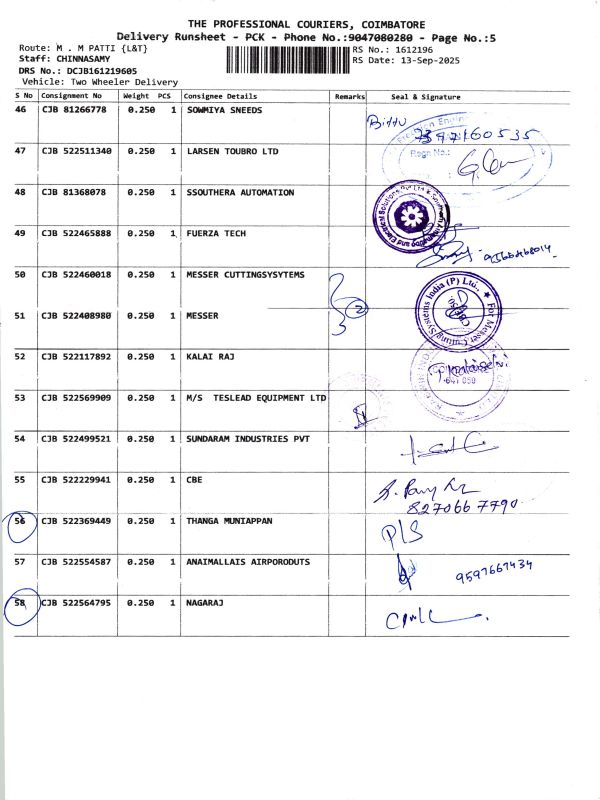 THE PROFESSIONAL COURIERS, COIMBATORE
Delivery Runsheet - PCK - Phone No.:9047080280 - Page No.:5
Route: M . M PATTI {L&T}
RS No.: 1612196
Staff: CHINNASAMY
RS Date: 13-Sep-2025
DRS No.: DCJB161219605
Vehicle: Two Wheeler Delivery
S No Consignment No Weight PCS Consignee Details Remarks Seal & Signature
46 CJB 81266778 0.250 1 SOWMIYA SNEEDS Bittu
47 CJB 522511340 0.250 1 LARSEN TOUBRO LTD Regn No.:
48 CJB 81368078 0.250 1 SSOUTHERA AUTOMATION
49 CJB 522465888 0.250 1 FUERZA TECH
50 CJB 522460018 0.250 1 MESSER CUTTINGSYSYTEMS 2 For Messer Cutting Systems India (P) Ltd.,
51 CJB 522408980 0.250 1 MESSER
52 CJB 522117892 0.250 1 KALAI RAJ
53 CJB 522569909 0.250 1 M/S TESLEAD EQUIPMENT LTD
54 CJB 522499521 0.250 1 SUNDARAM INDUSTRIES PVT
55 CJB 522229941 0.250 1 CBE
8270667790
56 CJB 522369449 0.250 1 THANGA MUNIAPPAN
57 CJB 522554587 0.250 1 ANAIMALLAIS AIRPORODUTS 9597667434
58 CJB 522564795 0.250 1 NAGARAJ